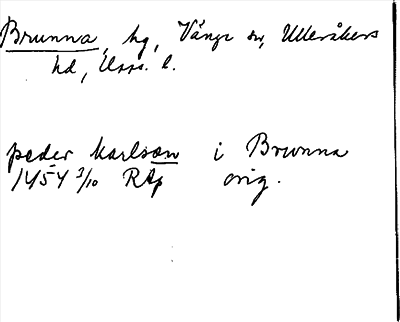 Brunna, hg, Vänge sn, Ulleråkers
hd, Upps. l.
peder karlson i Brunna
1454 3/10 RAp orig.